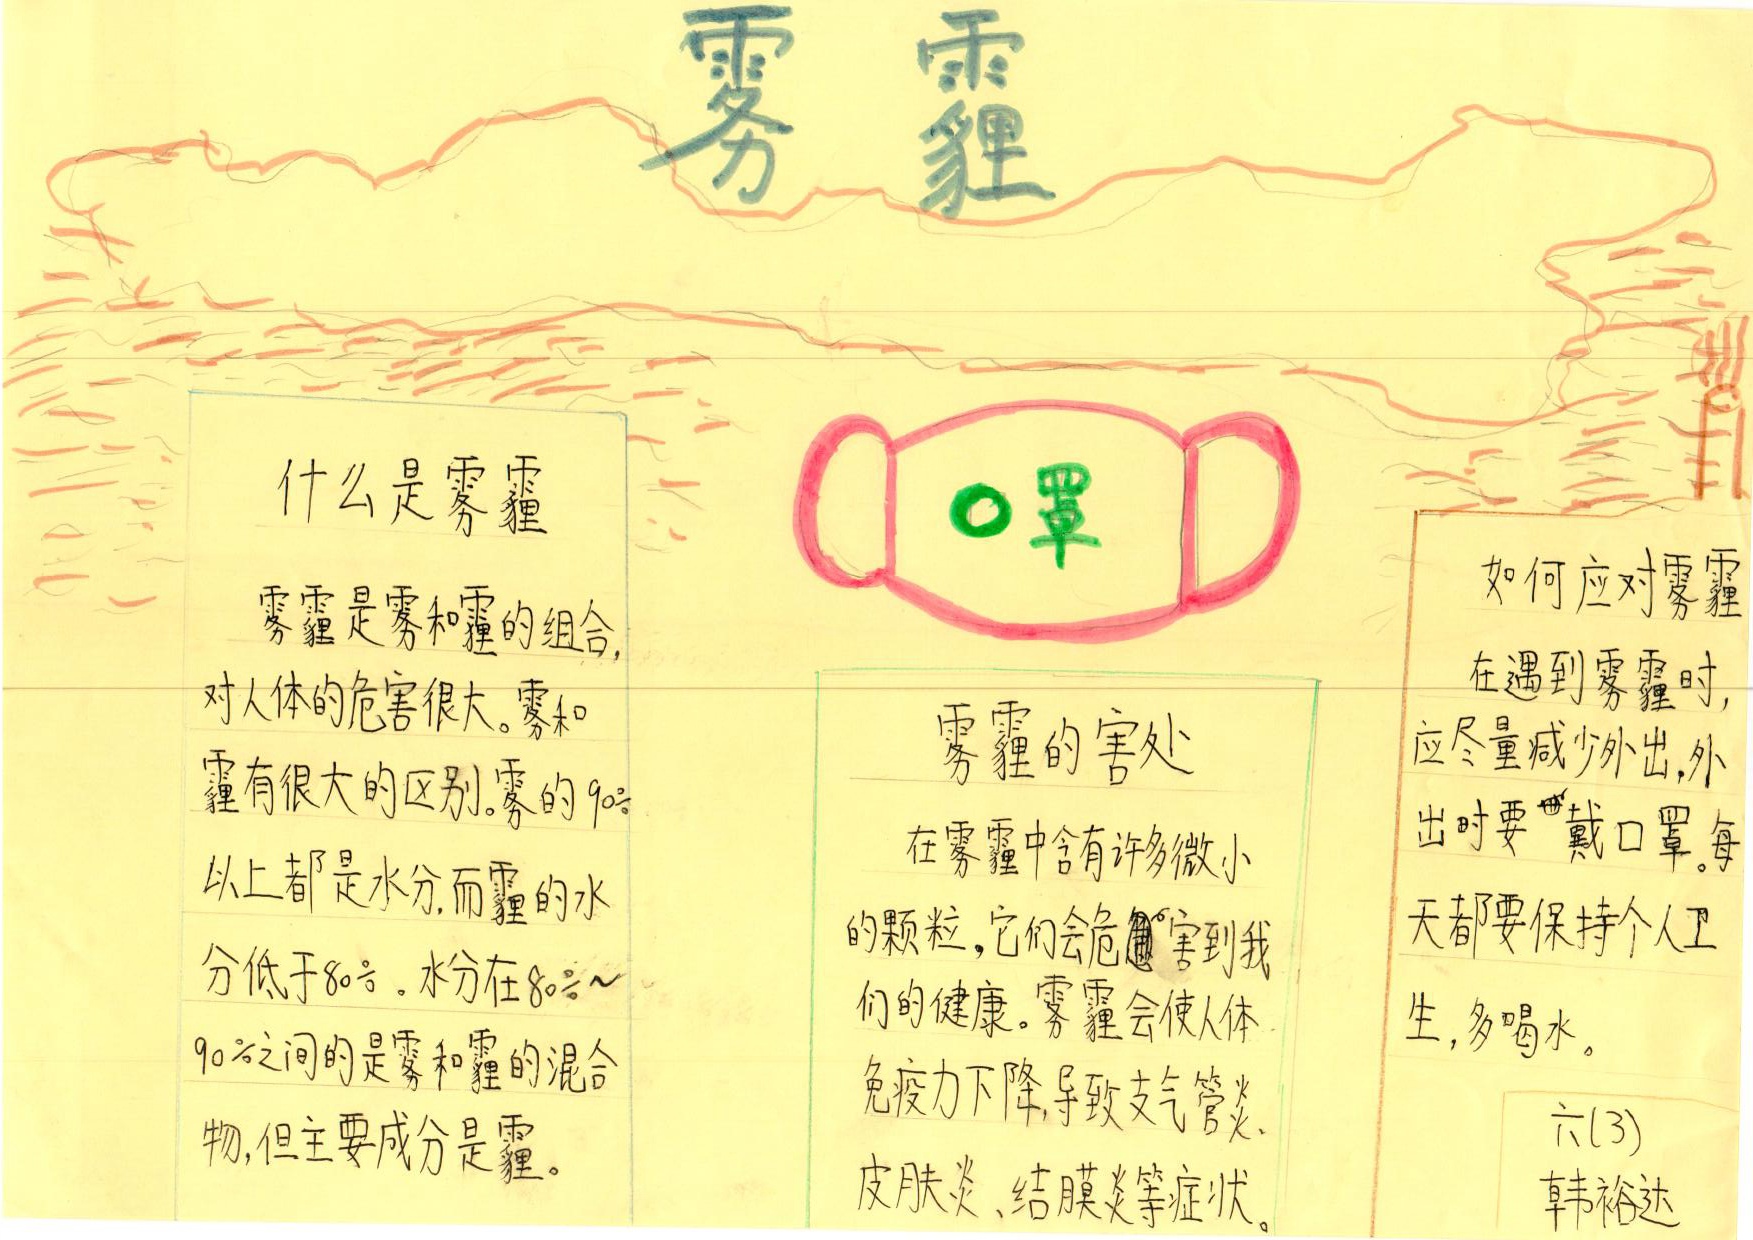 雾霾
什么是雾霾
雾霾是雾和霾的组合,
对人体的危害很大。雾和
霾有很大的区别。雾的90%
以上都是水分,而霾的水
分低于80%。水分在80%~
90%之间的是雾和霾的混合
物,但主要成分是霾。
口罩
雾霾的害处
在雾霾中含有许多微小
的颗粒。它们会危害到我
们的健康。雾霾会使人体
免疫力下降,导致支气管炎、
皮肤炎、结膜炎等症状。
如何应对雾霾
在遇到雾霾时,
应尽量减少外出,外
出时要戴口罩。每
天都要保持个人卫
生,多喝水。
六(3)
韩裕达